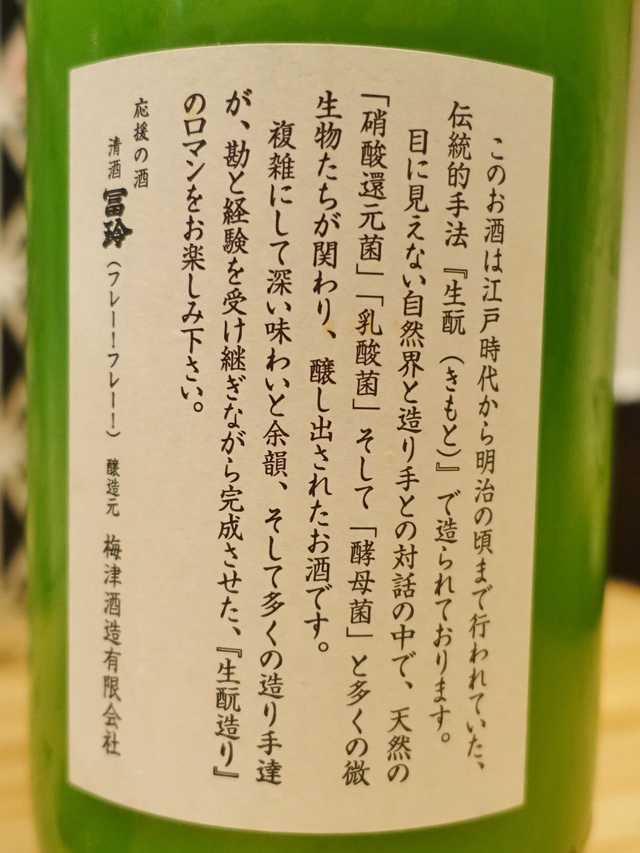 このお酒は江戸時代から明治の頃まで行われていた、
伝統的手法『生酛（きもと）』で造られております。
目に見えない自然界と造り手との対話の中で、天然の
「硝酸還元菌」「乳酸菌」そして「酵母菌」と多くの微
生物たちが関わり、醸し出されたお酒です。
複雑にして深い味わいと余韻、そして多くの造り手達
が、勘と経験を受け継ぎながら完成させた、『生酛造り』
のロマンをお楽しみ下さい。
応援の酒
清酒 冨玲（フレー！フレー！） 醸造元 梅津酒造有限会社